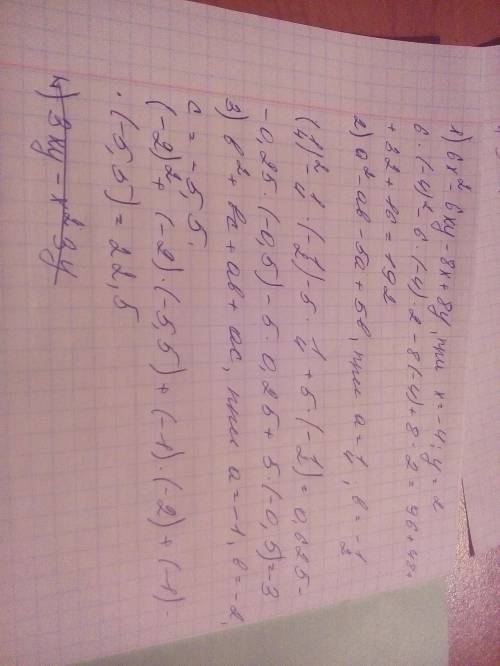 1) 6x² - 6xy - 8x + 8y, при x = -4; y = 2
6 · (-4)² - 6 · (-4) · 2 - 8(-4) + 8 · 2 = 96 + 48 +
+ 32 + 16 = 192
2) a² - ab - 5a + 5b, при a = 1/4, b = -1/2
(1/4)² - 1/4 · (-1/2) - 5 · 1/4 + 5 · (-1/2) = 0,625 -
- 0,25 · (-0,5) - 5 · 0,25 + 5 · (-0,5) = -3
3) b² + bc + ab + ac, при a = -1, b = -2,
c = -5,5.
(-2)² + (-2) · (-5,5) + (-1) · (-2) + (-1) ·
· (-5,5) = 22,5
4) 3xy - x² 9y